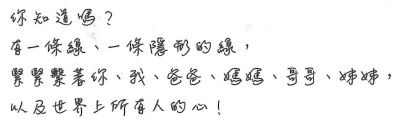 你知道嗎？
有一條線、一條隱形的線，
緊緊繫著你、我、爸爸、媽媽、哥哥、姊姊，
以及世界上所有人的心！